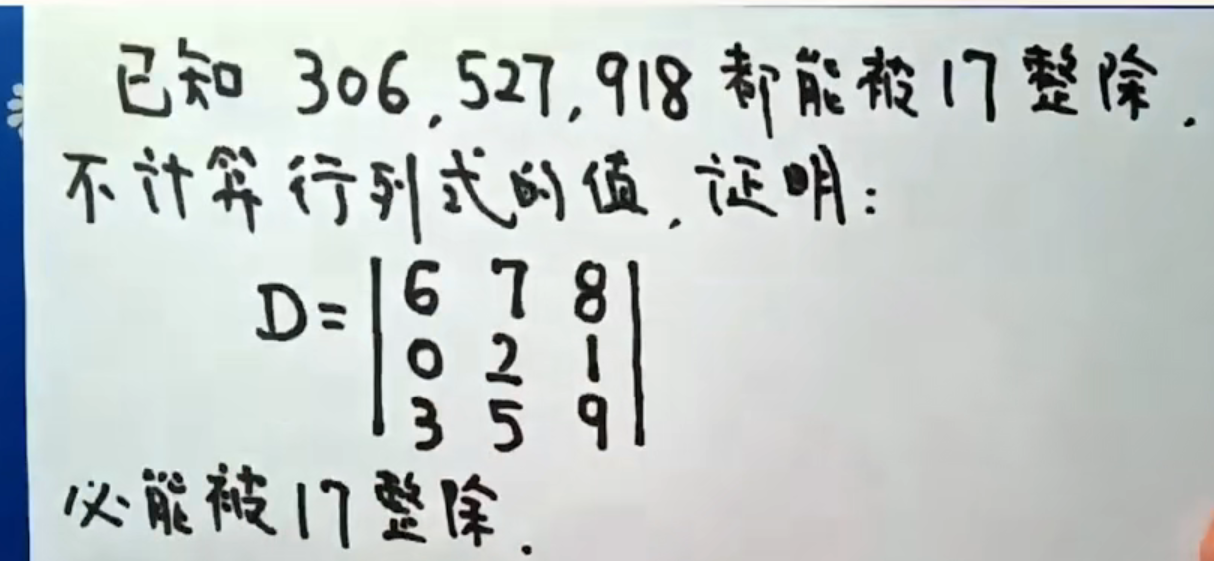 已知 306,527,918 都能被17整除.
不计算行列式的值,证明:
D=|6 7 8|
|0 2 1|
|3 5 9|
必能被17整除.